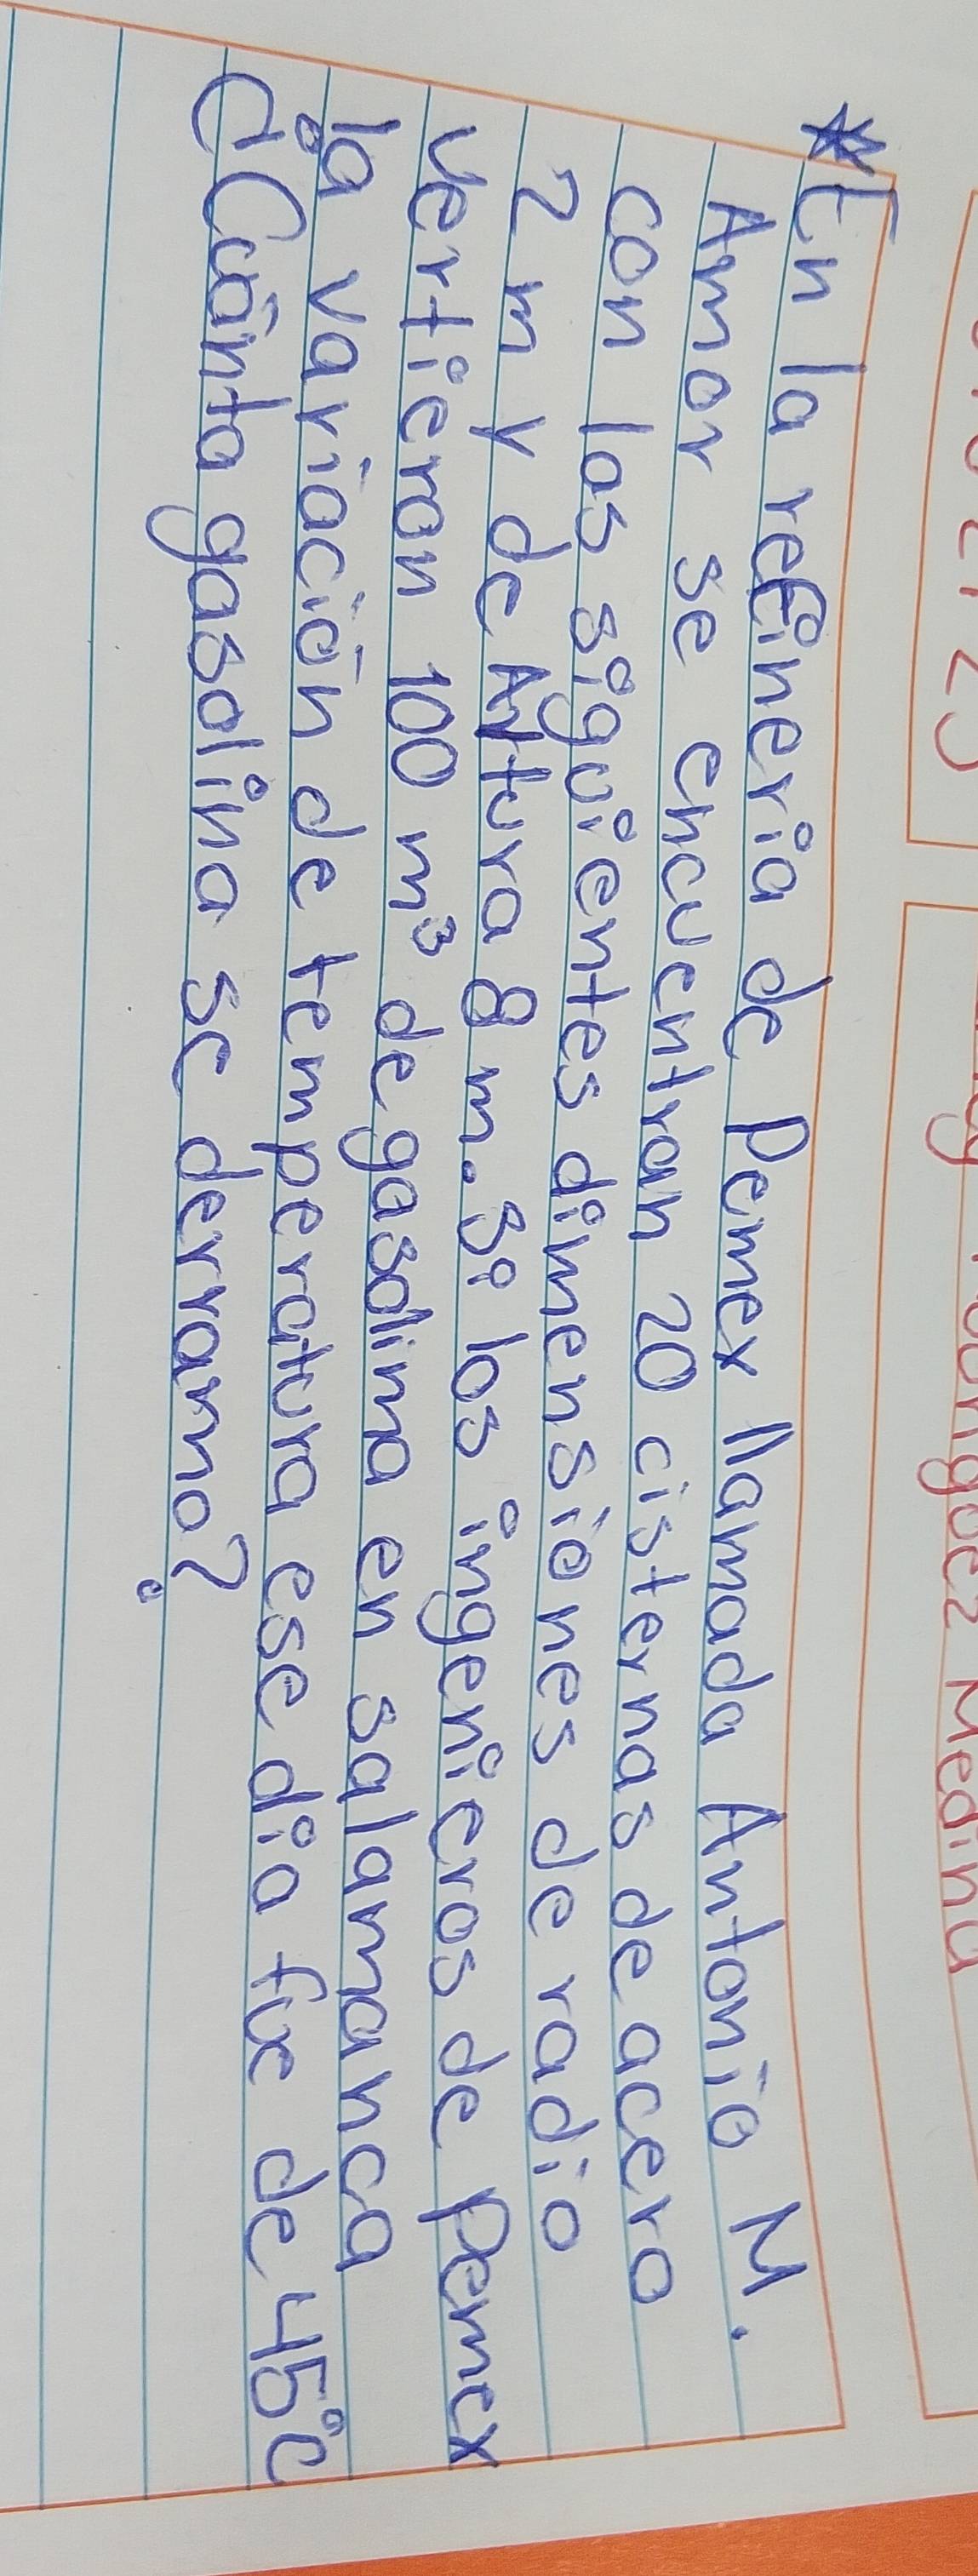 *En la refineria de Pemex llamada Antonio M.
Amor se encuentran 20 cisternas de acero
con las siguientes dimensiones de radio
2 m y de Altura 8 m. Si los ingenieros de Pemex
vertieron 100 m³ de gasolina en salamanca
la variación de temperatura ese dia fue de 45°C
¿Cuánta gasolina se derramo?